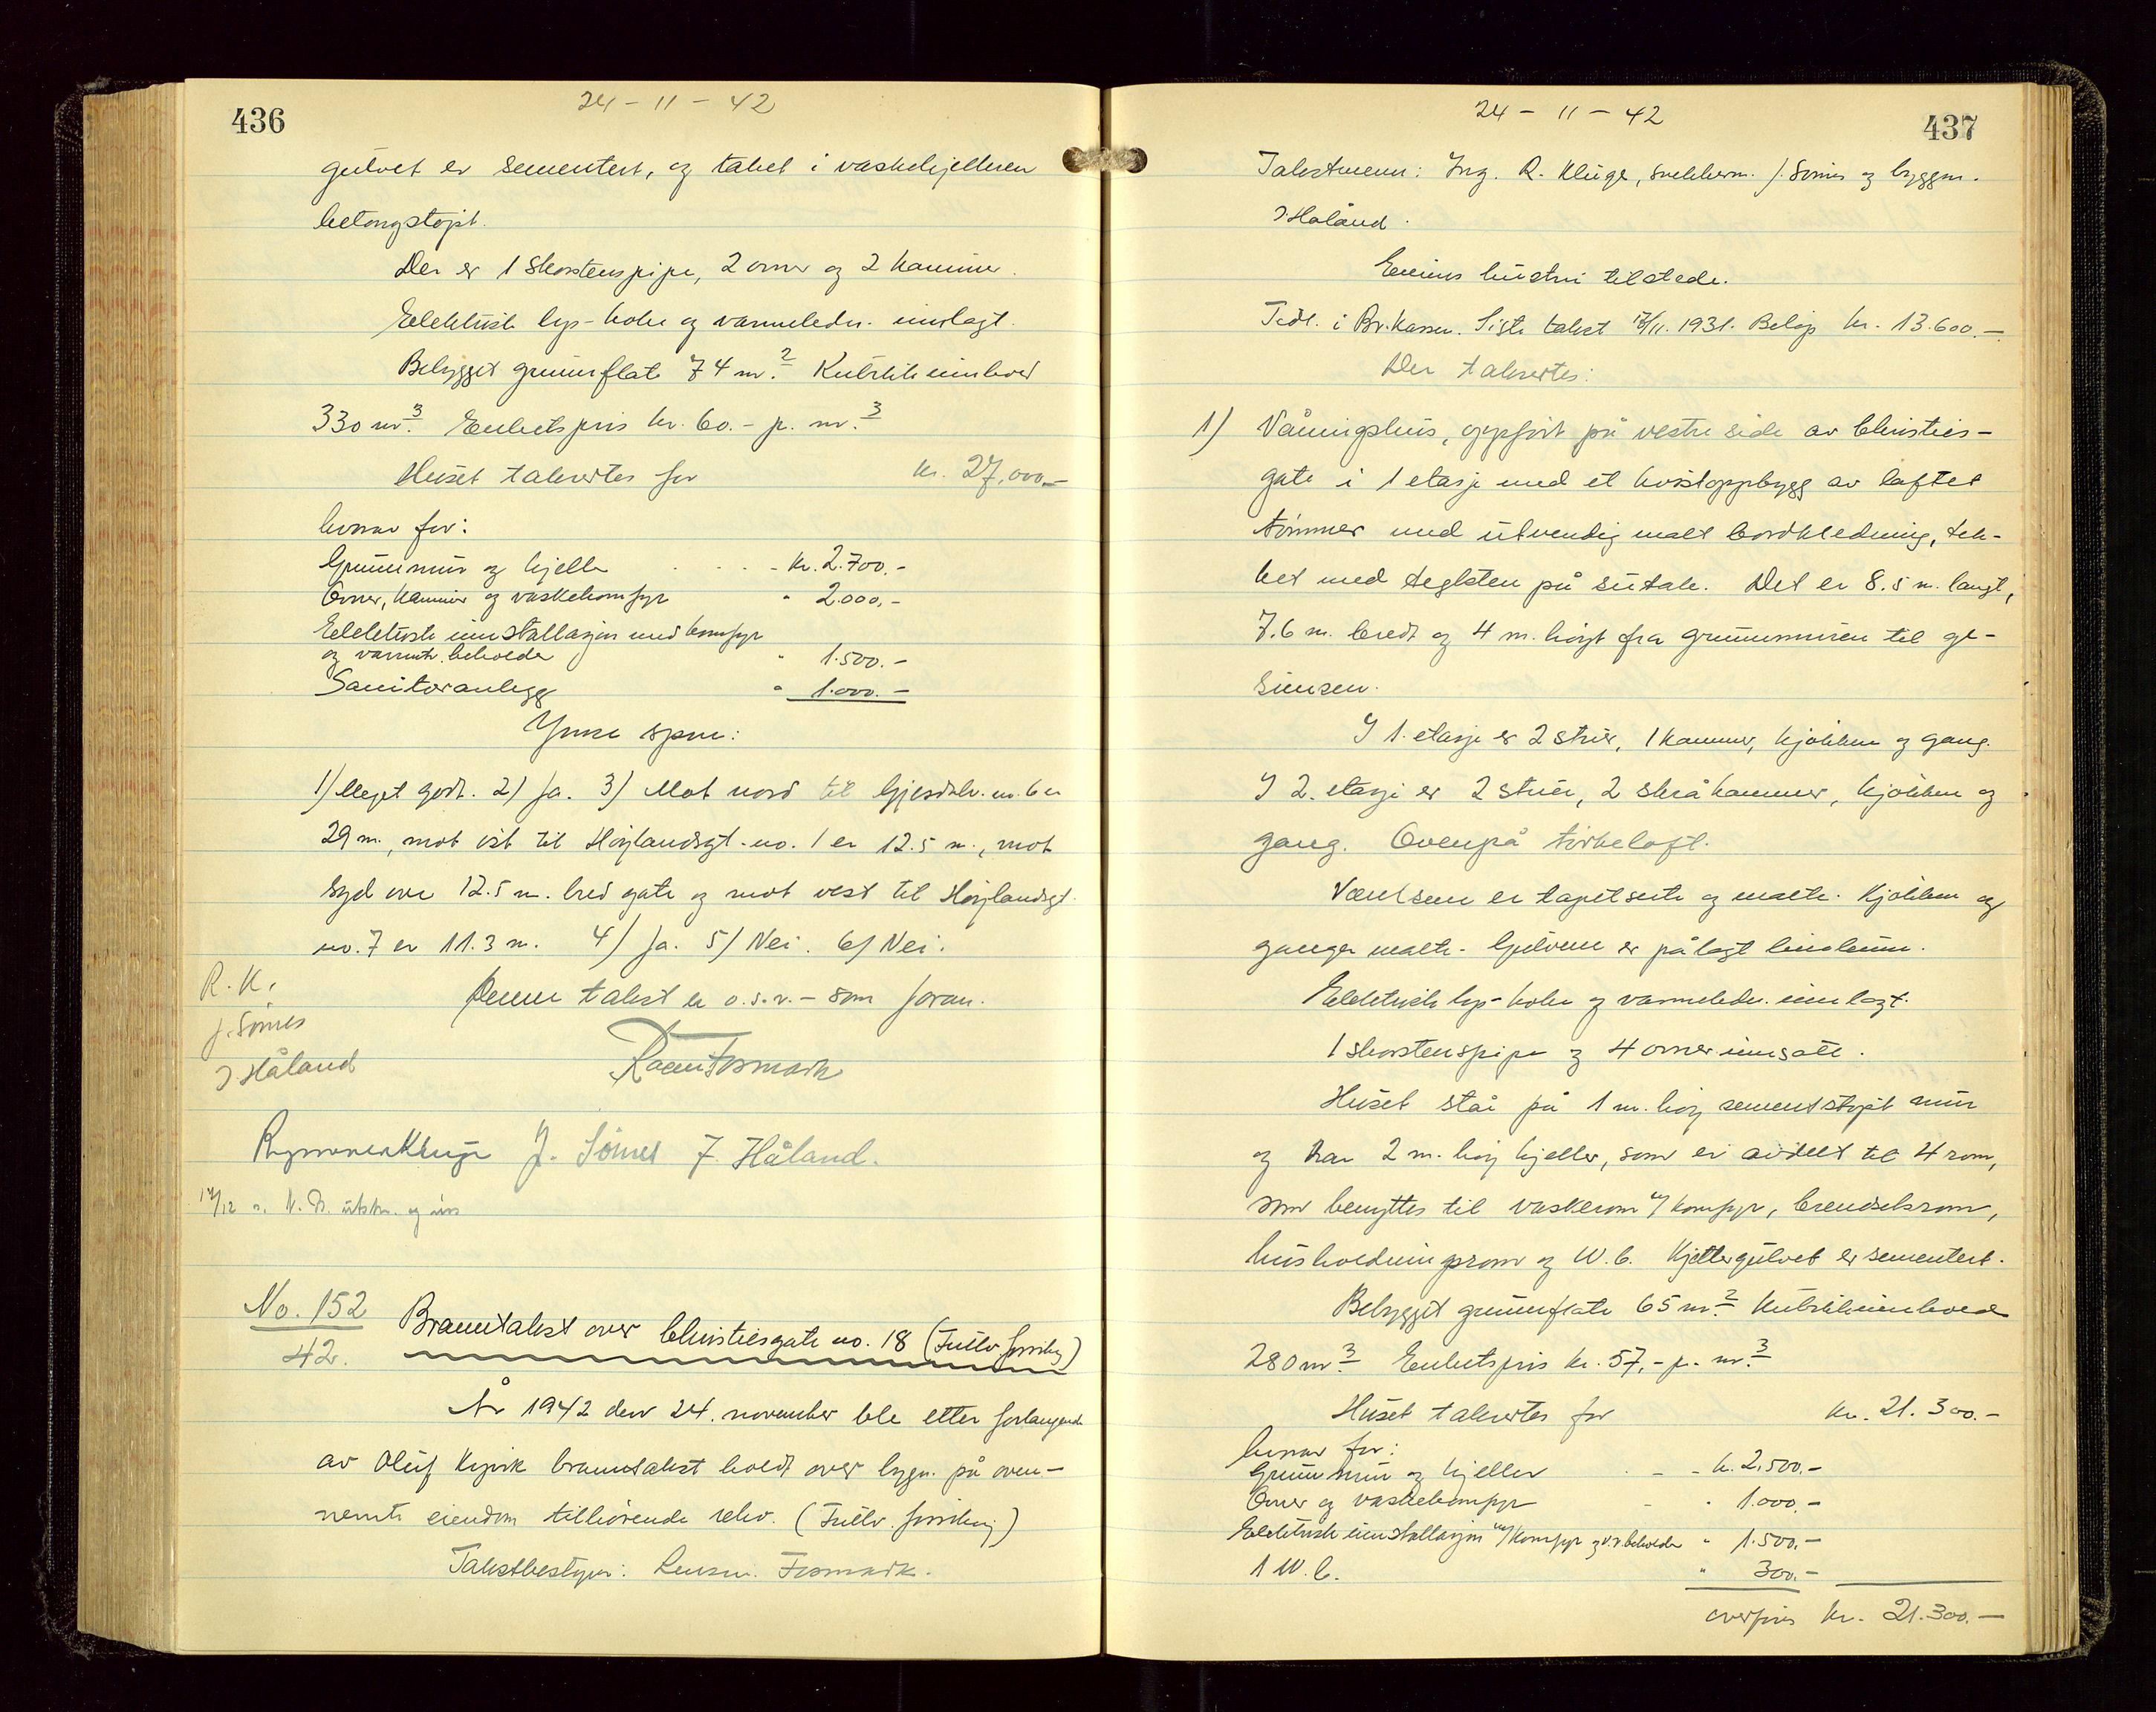 436
24 - 11 - 42
gulvet er sementert, og taket i vaskekjelleren
betongstøpt.
Der er 1 skorstenspipe, 2 ovner og 2 kaminer.
Elektrisk lys- koke og varmeledn. innlagt.
Bebygget grunnflate 74 m.² Kubikkinnhold
330 m.³ Enhetspris kr. 60.- p. m.³
Huset takseres for kr. 27.000.-
hvorav for:
Grunnmur og kjeller - kr. 2.700.-
Ovner, kaminer og vaskekomfyr " 2.000.-
Elektrisk innstallasjon med komfyr
og varmtv. beholder " 1.500.-
Sanitæranlegg " 1.000.-
Ymse spm:
1) Meget godt. 2) Ja. 3) Mot nord til Gjesdalv. no. 6 er
29 m., mot øst til Høylandsgt. no. 1 er 12.5 m., mot
syd ove 12.5 m. bred gate og mot vest til Høylandsgt.
no. 7 er 11.3 m. 4) Ja. 5) Nei. 6) Nei.
R. K.
J. Sömes
J Håland
Denne takst er o.s.v. - som foran.
Fosmark
J. Sömes J. Håland.
17/12 s. N. B. utskr. og
No. 152
42.
Branntakst over Christiesgate no. 18 (Fullv. forsikr.)
År 1942 den 24. november ble etter forlangende
av Oluf Kyvik branntakst holdt over bygn. på oven-
nevnte eiendom tilhörende rekv. (Fullv. forsikring)
Takstbestyrer: Lensm. Fosmark.
437
24 - 11 - 42
Takstmenn: Ing. R. Kluge, snekkerm. J. Sömes og byggm.
J Håland.
Eierens hustru tilstede.
Tidl. i Br.kassen. Siste takst 17/11. 1931. Beløp kr. 13.600.-
Der takseres:
1) Våningshus, oppfört på vestre side av Christies-
gate i 1 etasje med et kvistoppbygg av laftet
tömmer med utvendig malt bordkledning, tek-
ket med teglsten på sutak. Det er 8.5 m. langt,
7.6 m. bredt og 4 m. høyt fra grunnmuren til ge-
simsen.
I 1. etasje er 2 stuer, 1 kammer, kjökken og gang.
I 2. etasje er 2 stuer, 2 skråkammer, kjökken og
gang. Ovenpå törkeloft.
Værelsene er tapetserte og malte. Kjökken og
ganger malte. Gulvene er pålagt linoleum.
Elektrisk lys- koke og varmeledn. innlagt.
1 skorstenspipe og 4 ovner innsatt.
Huset står på 1 m. høy sementstøpt mur
og har 2 m. høy kjeller, som er avdelt til 4 rom,
som benyttes til vaskerom m/ komfyr, brendselsrom,
husholdningsrom og W.C. Kjellergulvet er sementert.
Bebygget grunnflate 65 m.² Kubikkinnhold
280 m.³ Enhetspris kr. 57,- p. m.³
Huset takseres for kr. 21.300.-
hvorav for:
Grunnmur og kjeller - - kr. 2.500.-
Ovner og vaskekomfyr - " 1.000.-
Elektrisk innstallasjon m/ komfyr og v.v. beholder " 1.500.-
1 W.C. " 300.-
overføres kr. 21.300.-